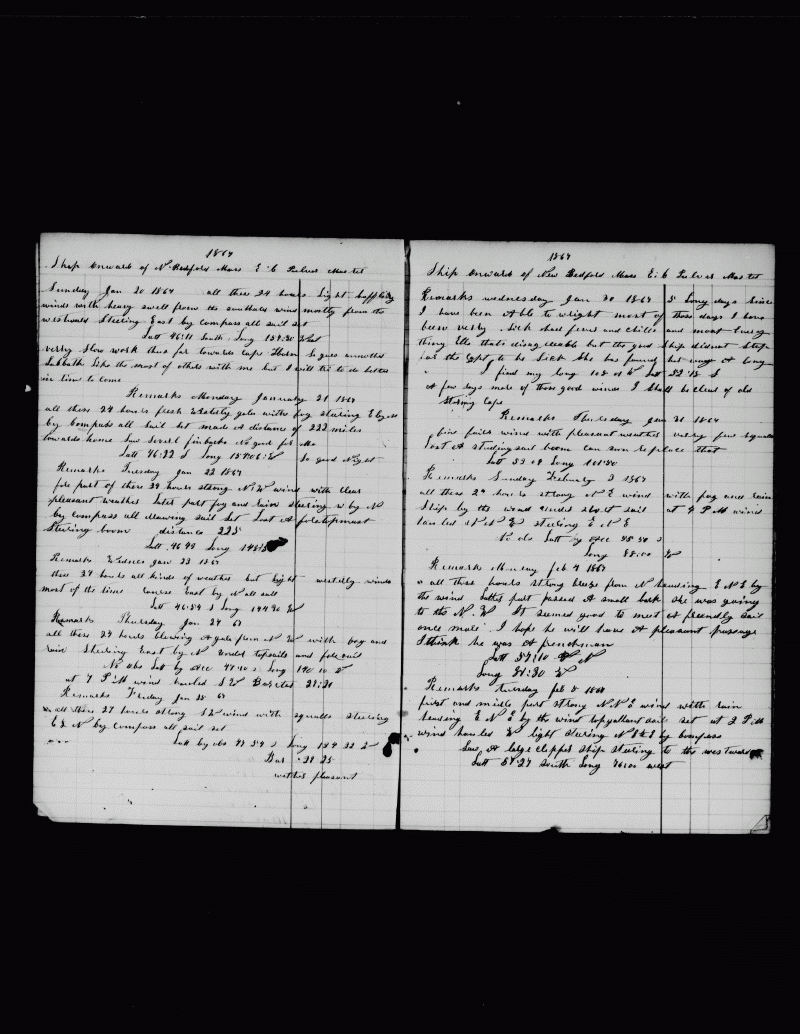 1867
Ship Onward of N. Bedford Mass E. C Pulver Master
Sunday Jan 20 1867 all these 24 hours Light baffling
winds with heavy swell from the southard winds mostly from the
westward Steering East by compass all sail set
Latt 46:11 South Long 154:30 West
verry slow work thus far towards Cape Horn So goes another
Sabbath Like the most of others with me but I will try to do better
in time to come
Remarks Monday January 21 1867
all these 24 hours fresh Westerly gales with fog steering E by S
by Compass all sail set made A distance of 222 miles
towards home Saw Severl finbacks No good for Me
Latt 46:22 S Long 154:06 W So good Night
Remarks Tuesday Jan 22 1867
fore part of these 24 hours strong N.W wind with clear
pleasant weather Later part fog and rain steering by N
by Compass all drawing sail Set Lost A foretopmast
Steering boom distance 225
Latt 46 49 Long
Remarks Wednes Jan 23 1867
these 24 hours all kinds of weather but light westerly winds
most of the time course East by N all sail
Latt 46:54 S Long 144 90 W
Remarks Thursday Jan 24 67
all these 24 hours blowing A gale from N W with fog and
rain Steering East by N under topsails and foresail
No obs Latt by acc 47.40 S Long 140 10 W
at 7 P M wind hauled S W Baroter
Remarks Friday Jan 25 67
all these 24 hours strong S W wind with squalls steering
E by N by Compass all sail set
Latt by obs 47 54 S Long 134 32
Bar 29 25
wether pleasant
1867
Ship Onward of New Bedford Mass E. C Pulver Master
Remarks wednesday Jan 30 1867 5 Long days Since
I have been Able to wright most of those days I have
been verry Sick had fever and chills and most Every
thing Else thats disagreeable but the good Ship didnot Stop
for the Capt to be Sick She has found her way A long
I find my long 108 W Latt 52 13 S
A few days more of those good winds I Shall be clear of old
Stormy Cape
Remarks Thursday Jan 31 1867
fine fair wind with pleasant weather verry few squalls
Lost A studingsail boom can soon replace that
Latt 53 09 Long 101:30
Remarks Sunday February 3 1867
all these 24 hours strong N E wind with fog and rain
Ship by the wind under short sail at 4 P M wind
hauled steering E N E
No obs Latt by acc S
Long 88:00 W
Remarks Munday feb 4 1867
all these hours strong breeze from N heading E N E by
the wind latter part passed A small bark she was going
to the N. W It seemed good to meet A freendly sail
once more I hope he will have A pleasant passage
I think he was A frenchman
Latt 57:10
Long 81:30 W
Remarks Tuesday feb 5 1867
first and middle part strong N.N.E wind with rain
heading E N E by the wind topgallant sail set at 2 P M
wind hauled W light steering N E by compass
Saw A large clipper ship steering to the westward
Latt 57:27 South Long 76:00 west